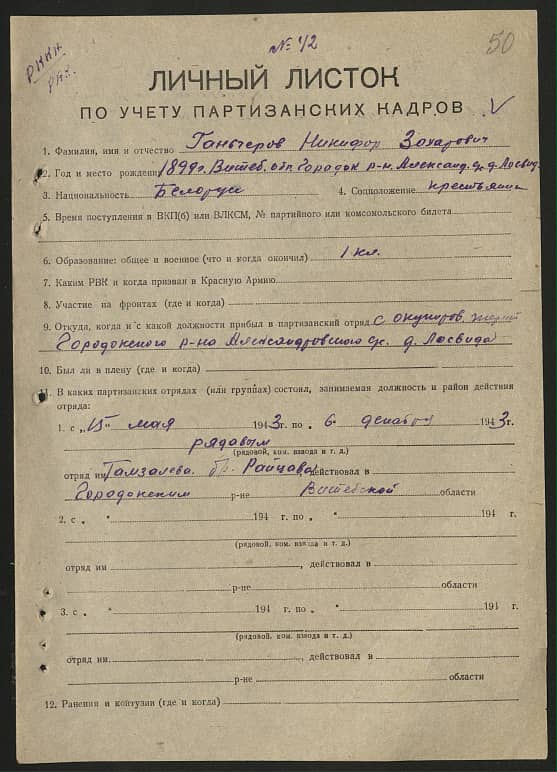 № 42
50
ЛИЧНЫЙ ЛИСТОК
ПО УЧЕТУ ПАРТИЗАНСКИХ КАДРОВ
1. Фамилия, имя и отчество Ганьчеров Никифор Захарович
2. Год и место рождения 1899г. Витеб. обл. Городок р-н. Александ. с/с д. Лосвид.
3. Национальность Белорус 4. Соцположение крестьянин
5. Время поступления в ВКП(б) или ВЛКСМ, № партийного или комсомольского билета
6. Образование: общее и военное (что и когда окончил) 1 кл.
7. Каким РВК и когда призван в Красную Армию
8. Участие на фронтах (где и когда)
9. Откуда, когда и с какой должности прибыл в партизанский отряд с окупиров.
Городокского р-на Александровского с/с. д. Лосвида
10. Был ли в плену (где и когда)
11. В каких партизанских отрядах (или группах) состоял, занимаемая должность и район действия
отряда:
1. с „15" мая 1943 г. по „6" декабря 1943 г.
рядавым
(рядовой, ком. взвода и т. д.)
отряд им. бр. Райцава, действовал в
Городокским р-не Витебской области
2. с „ " 194 г. по „ " 194 г.
(рядовой, ком. взвода и т. д.)
отряд им. , действовал в
р-не области
3. с „ " 194 г. по „ " 194 г.
(рядовой, ком. взвода и т. д.)
отряд им. , действовал в
р-не области
12. Ранения и контузии (где и когда)